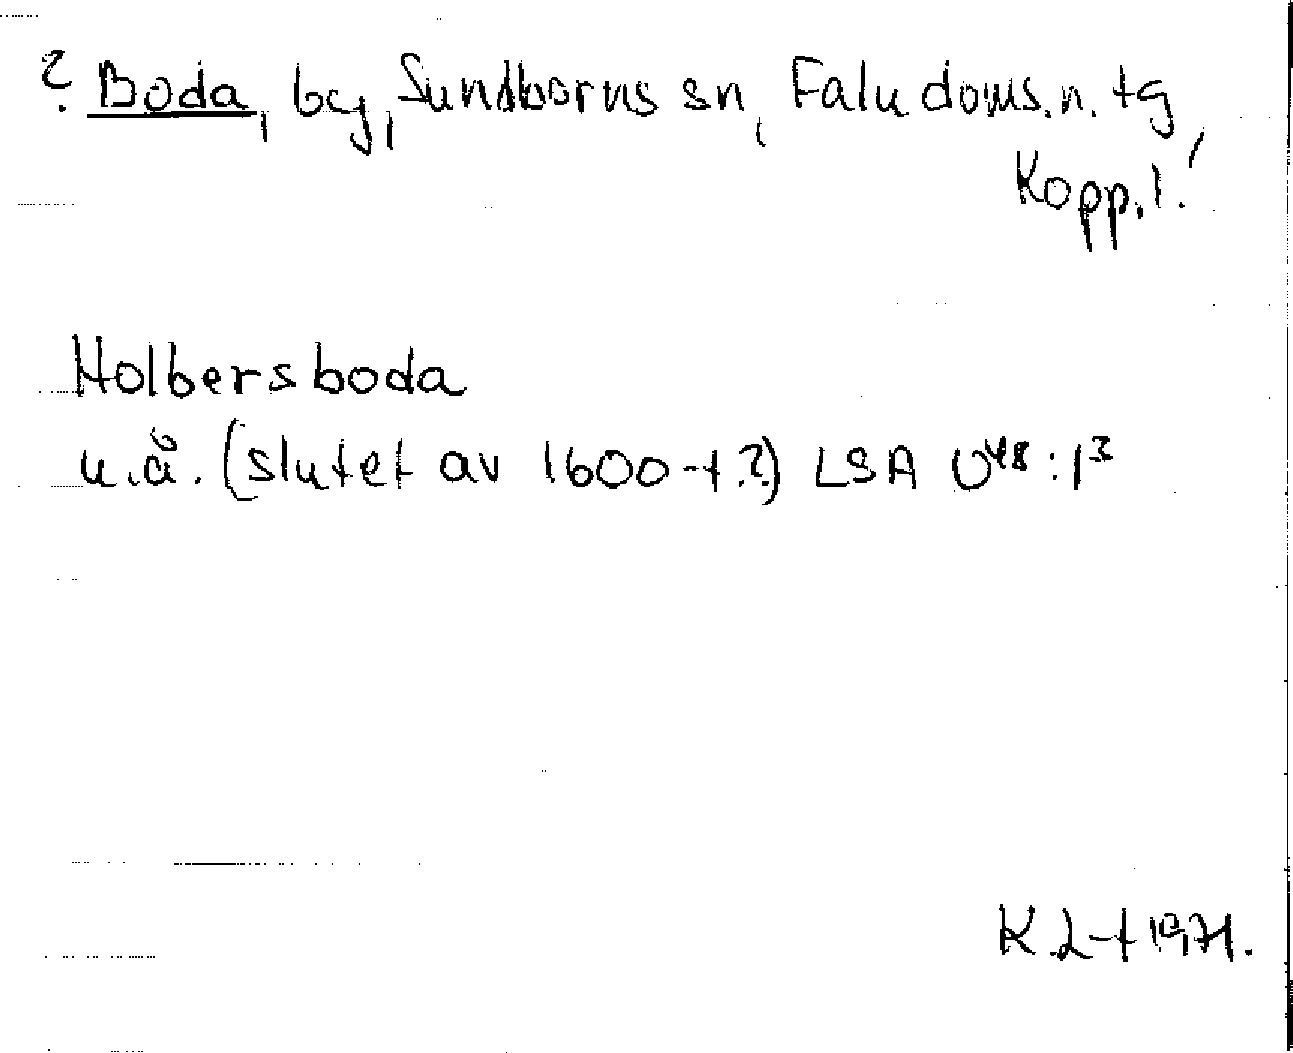 ? Boda, by, Sundborns sn, Falu doms.n. tg,
Kopp.l.
Holbersboda
u.å. (slutet av 1600-t.?) LSA U48:1³
1971.